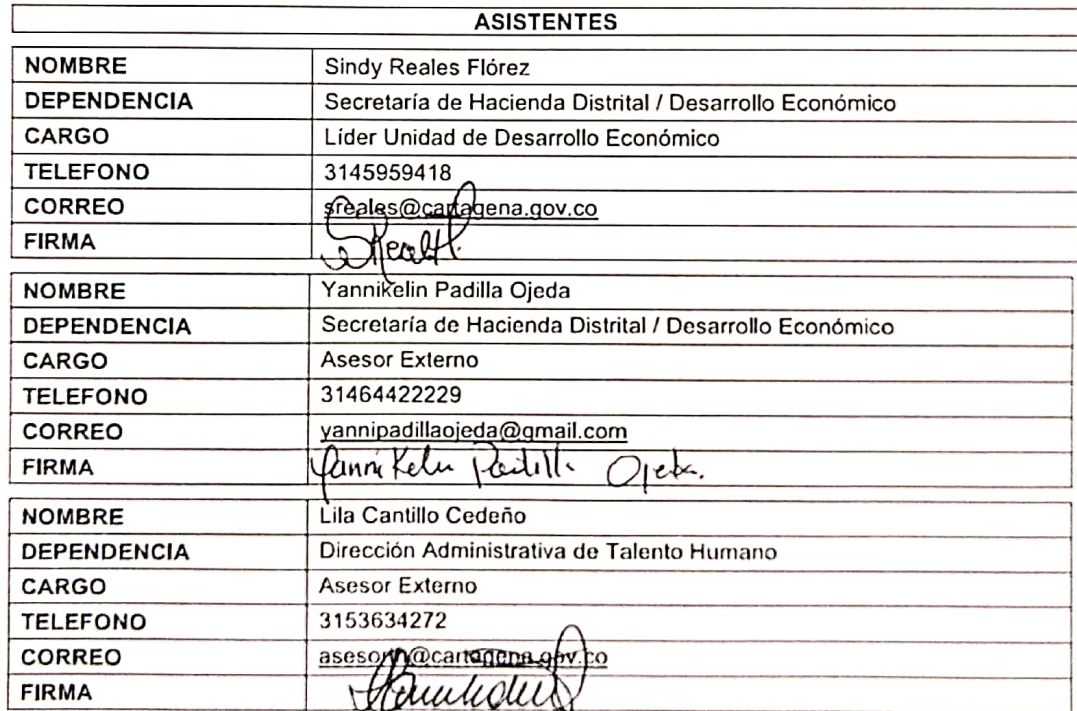 ASISTENTES
NOMBRE Sindy Reales Flórez
DEPENDENCIA Secretaría de Hacienda Distrital / Desarrollo Económico
CARGO Líder Unidad de Desarrollo Económico
TELEFONO 3145959418
CORREO sreales@cartagena.gov.co
FIRMA
NOMBRE Yannikelin Padilla Ojeda
DEPENDENCIA Secretaría de Hacienda Distrital / Desarrollo Económico
CARGO Asesor Externo
TELEFONO 31464422229
CORREO yannipadillaojeda@gmail.com
FIRMA Padilla Ojeda.
NOMBRE Lila Cantillo Cedeño
DEPENDENCIA Dirección Administrativa de Talento Humano
CARGO Asesor Externo
TELEFONO 3153634272
CORREO
FIRMA